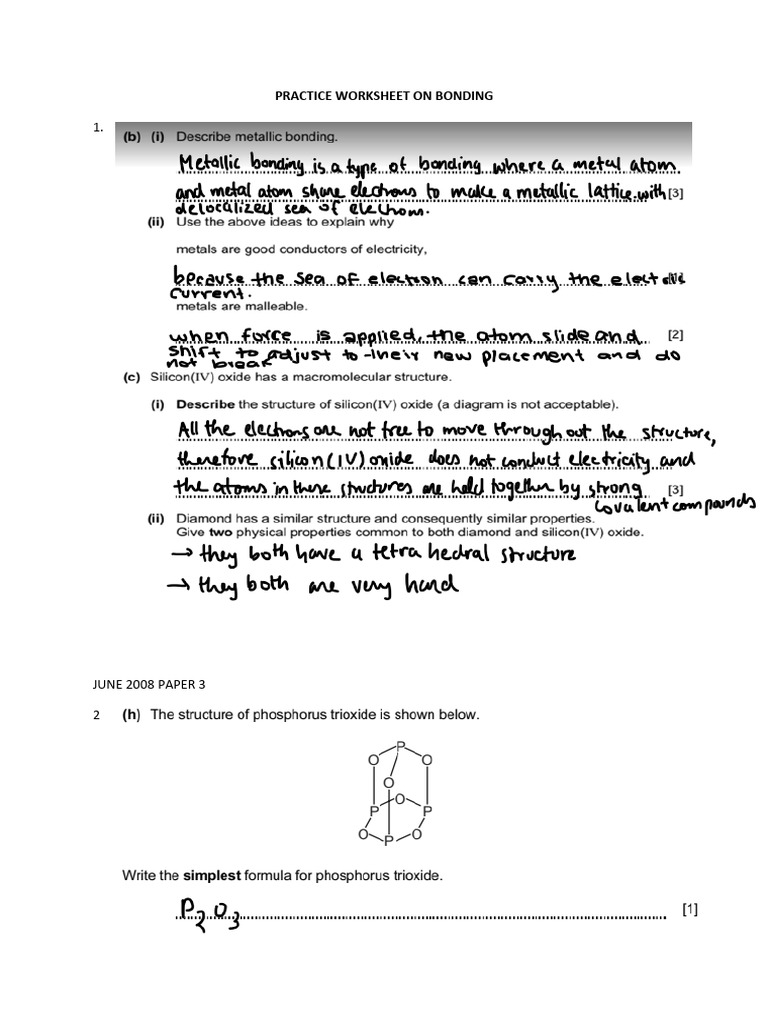 PRACTICE WORKSHEET ON BONDING
1.
(b) (i) Describe metallic bonding.
Metallic bonding is a type of bonding where a metal atom
and metal atom share electrons to make a metallic lattice with [3]
delocalized sea of electrons.
(ii) Use the above ideas to explain why
metals are good conductors of electricity,
because the sea of electron can carry the electric
current.
metals are malleable.
when force is applied, the atom slide and [2]
shift to adjust to their new placement and do
not break
(c) Silicon(IV) oxide has a macromolecular structure.
(i) Describe the structure of silicon(IV) oxide (a diagram is not acceptable).
All the electrons are not free to move through out the structure,
therefore silicon(IV) oxide does not conduct electricity and
the atoms in these structures are held together by strong [3]
covalent compounds
(ii) Diamond has a similar structure and consequently similar properties.
Give two physical properties common to both diamond and silicon(IV) oxide.
→ they both have a tetra hedral structure
→ they both are very hard
JUNE 2008 PAPER 3
2 (h) The structure of phosphorus trioxide is shown below.
P
O O
O
O
P P
O O
P
Write the simplest formula for phosphorus trioxide.
P2O3 [1]